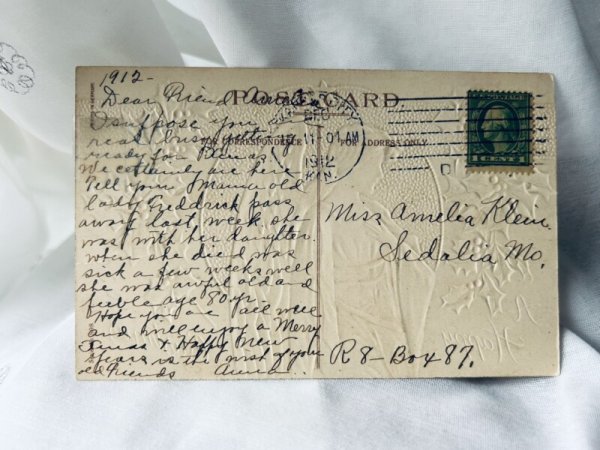 1912-
POST CARD.
Dear Friend Amelia
I suppose you
real busy getting
ready for Xmas
We certainly are here
Tell your Mama old
lady Fredrick pass
away last week she
was with her daughter.
when she died was
sick a few weeks well
she was awful old and
feeble age 80 yr.
Hope you are all well
and will enjoy a Merry
Xmas & Happy New
Years is the wish of your
old Friends Anna
FOR CORRESPONDENCE
FOR ADDRESS ONLY
DEC
17
11 01 AM
1912
KAN.
CENTS
Miss Amelia Klein
Sedalia Mo.
R8-Box 87.